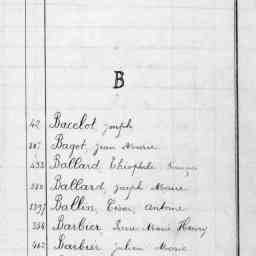 B
42 Bacelot, Joseph
Bagot, Jean Marie
Ballard Théophile François
Ballard, Joseph Marie
Ballin, Antoine
Barbier Marie Henry
Barbier Julien Marie